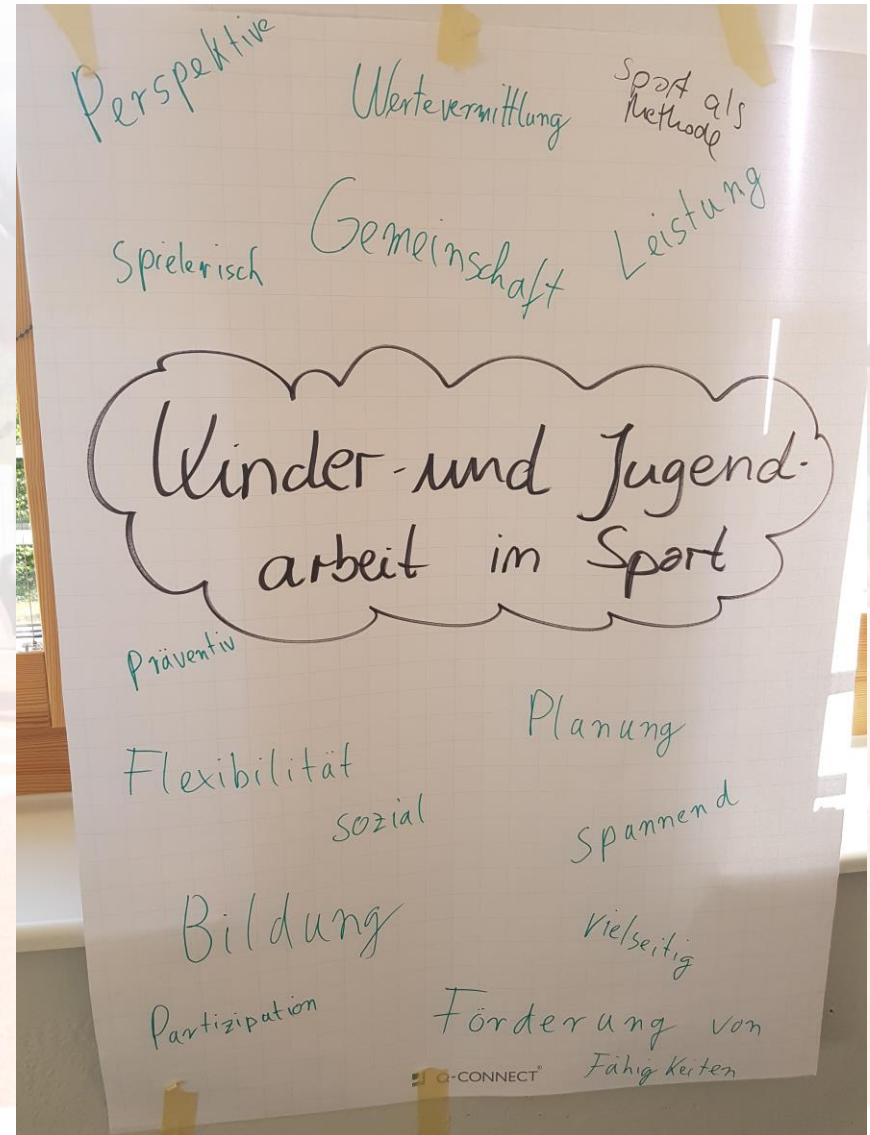 Perspektive
Wertevermittlung
Sport als
Methode
Spielerisch
Gemeinschaft
Leistung
Kinder- und Jugend-
arbeit im Sport
Präventiv
Planung
Flexibilität
sozial
spannend
Bildung
vielseitig
Partizipation
Förderung von
Fähigkeiten
Q-CONNECT®